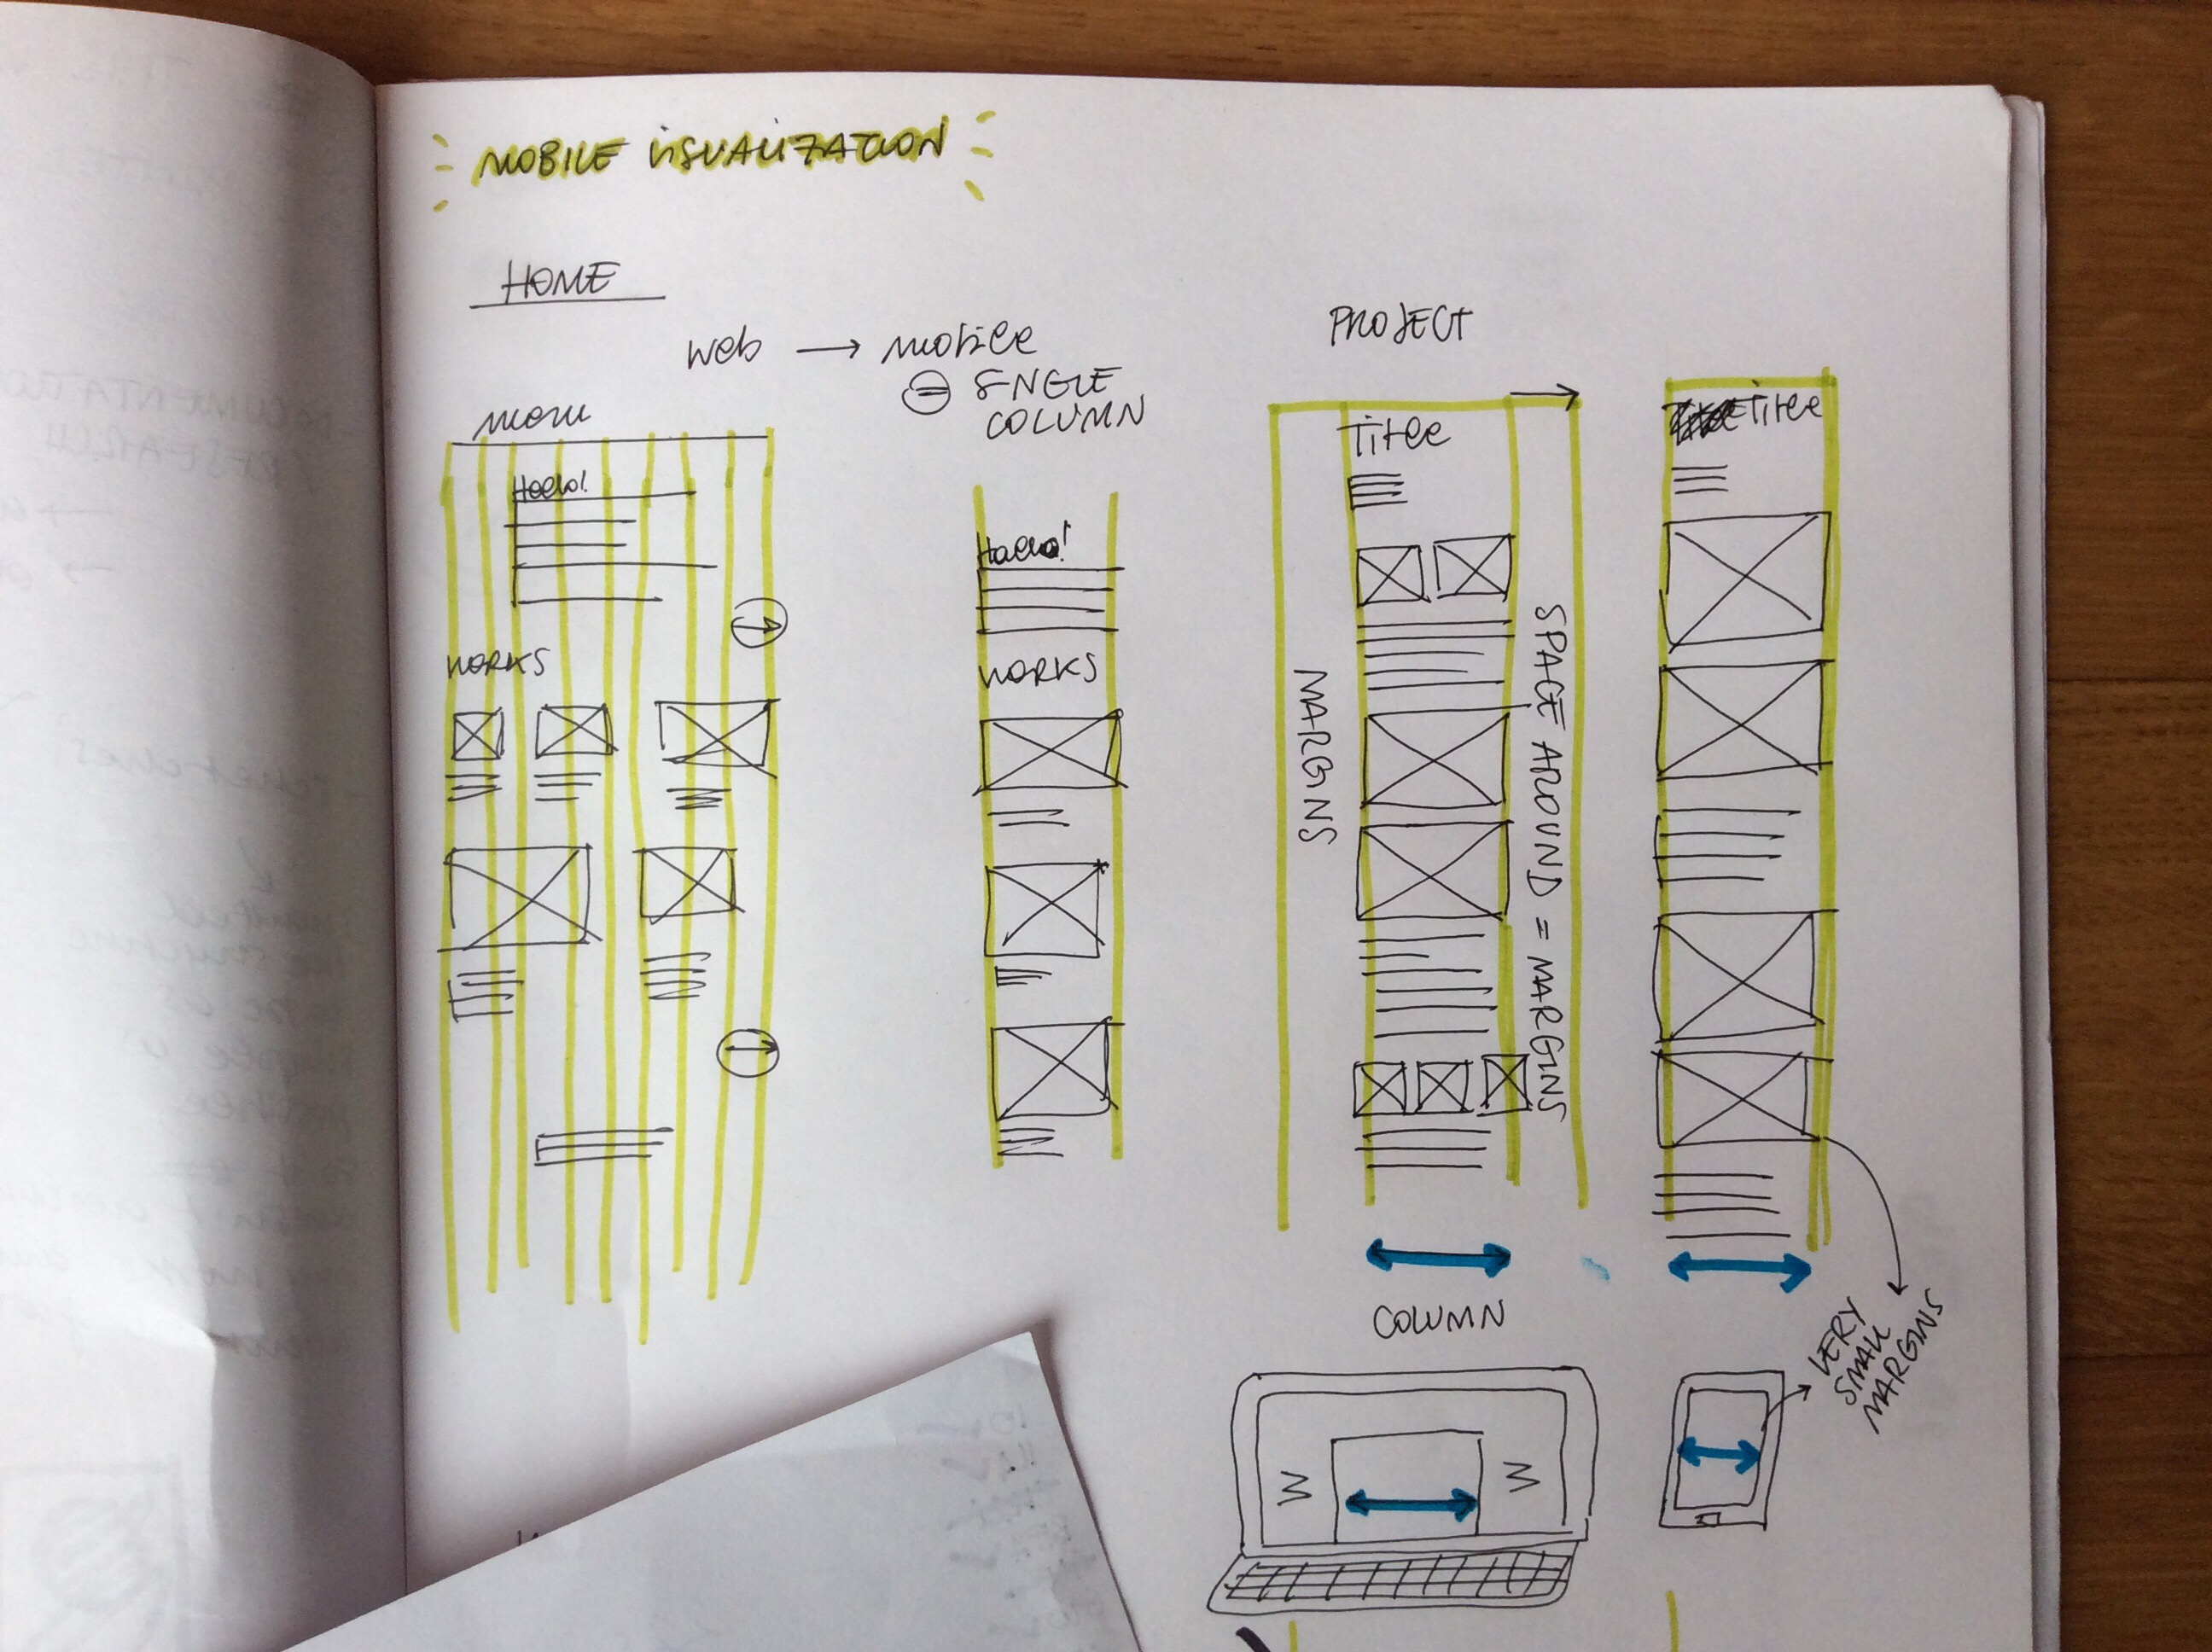 MOBILE VISUALIZATION
HOME
web → mobile
= SINGLE
COLUMN
menu
Hello!
WORKS
Hello!
WORKS
PROJECT
Title
MARGINS
SPACE AROUND = MARGINS
Title
COLUMN
M
M
VERY
SMALL
MARGINS